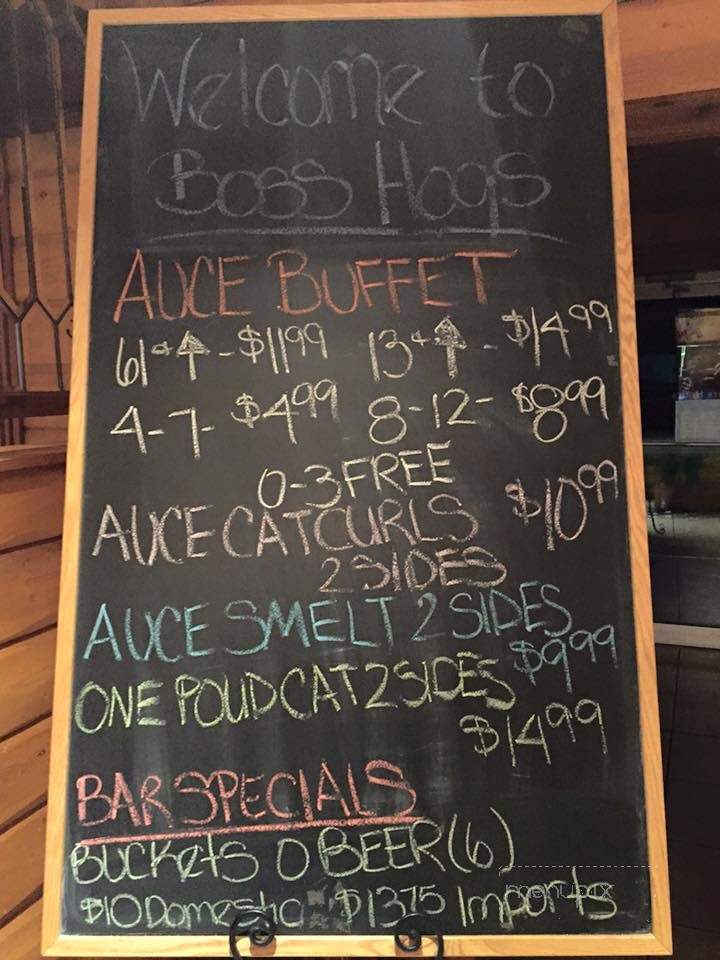 Welcome to
Boss Hogs
AUCE BUFFET
61+↑-$11.99 13+↑-$14.99
4-7-$4.99 8-12-$8.99
0-3 FREE
AUCE CATCURLS $10.99
2 SIDES
AUCE SMELT 2 SIDES
$9.99
ONE POUD CAT 2 SIDES
$14.99
BAR SPECIALS
BUCKETS O BEER (6)
$10 Domestic $13.75 Imports
menupix